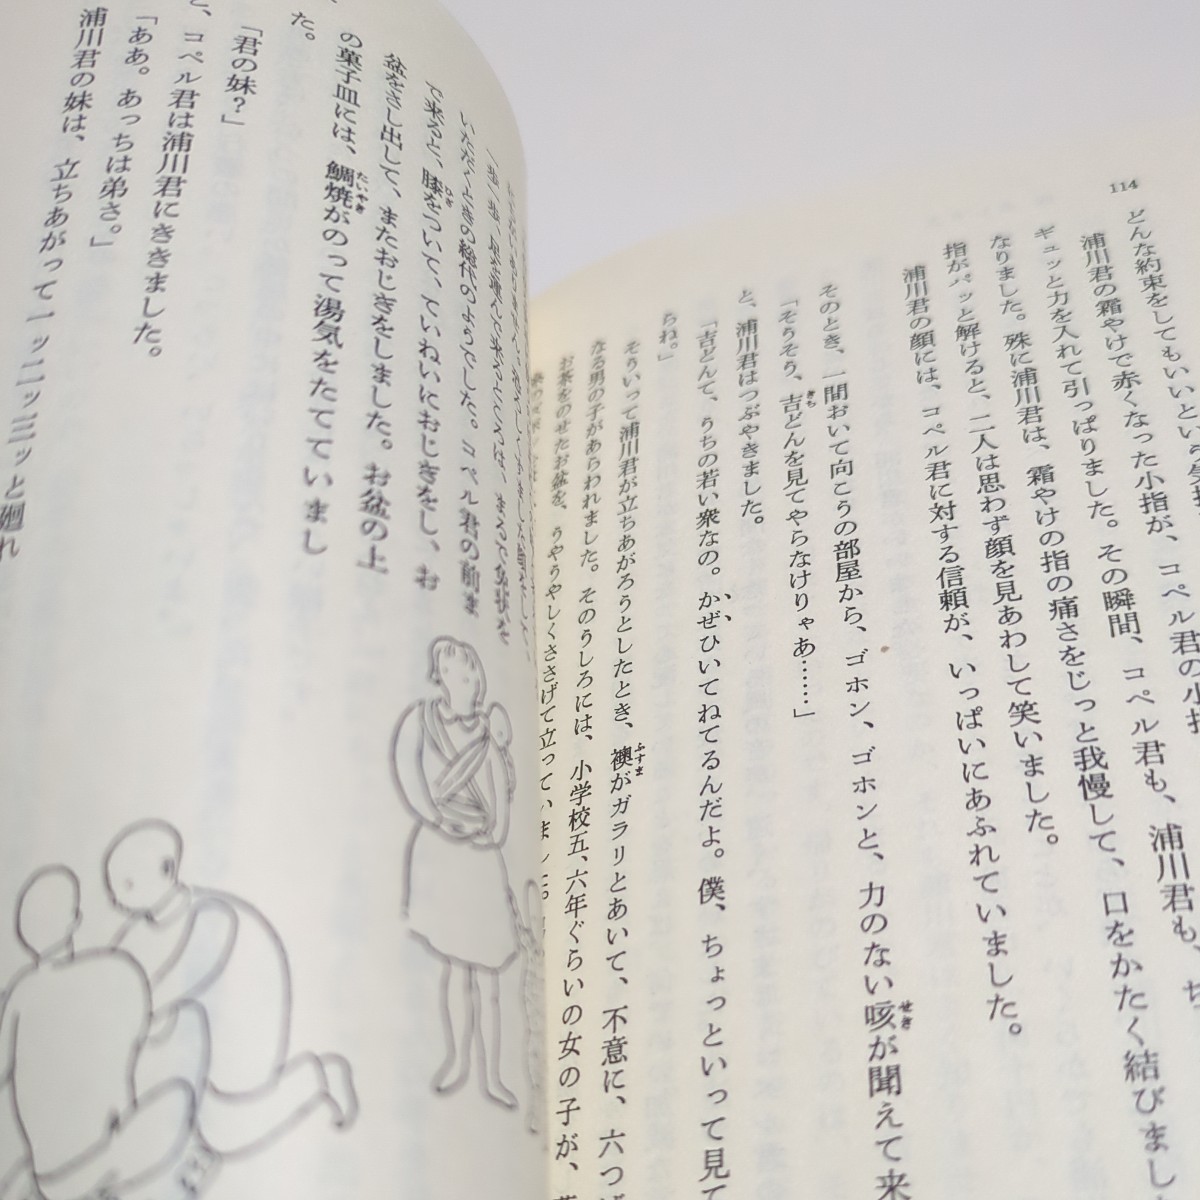 114
どんな約束をしてもいいという気持
浦川君の霜やけで赤くなった小指が、コペル君の小指
ギュッと力を入れて引っぱりました。その瞬間、コペル君も、浦川君も、
なりました。殊に浦川君は、霜やけの指の痛さをじっと我慢して、口をかたく結びまし
指がパッと解けると、二人は思わず顔を見あわして笑いました。
浦川君の顔には、コペル君に対する信頼が、いっぱいにあふれていました。
そのとき、一間おいて向こうの部屋から、ゴホン、ゴホンと、力のない咳が聞えて来
「そうそう、吉どんを見てやらなけりゃあ……」
と、浦川君はつぶやきました。
「吉どんて、うちの若い衆なの。かぜひいてねてるんだよ。僕、ちょっといって見て
らね。」
そういって浦川君が立ちあがろうとしたとき、襖がガラリとあいて、不意に、六つば
なる男の子があらわれました。そのうしろには、小学校五、六年ぐらいの女の子が、
お茶をのせたお盆を、うやうやしくささげて立っていました。
一歩一歩、足を運んで来るところは、まるで免状を
いただくときの総代のようでした。コペル君の前ま
で来ると、膝をついて、ていねいにおじぎをし、お
盆をさし出して、またおじぎをしました。お盆の上
の菓子皿には、鯛焼がのって湯気をたてていまし
た。
「君の妹？」
と、コペル君は浦川君にききました。
「ああ。あっちは弟さ。」
浦川君の妹は、立ちあがって一ッ二ッ三ッと廻れ